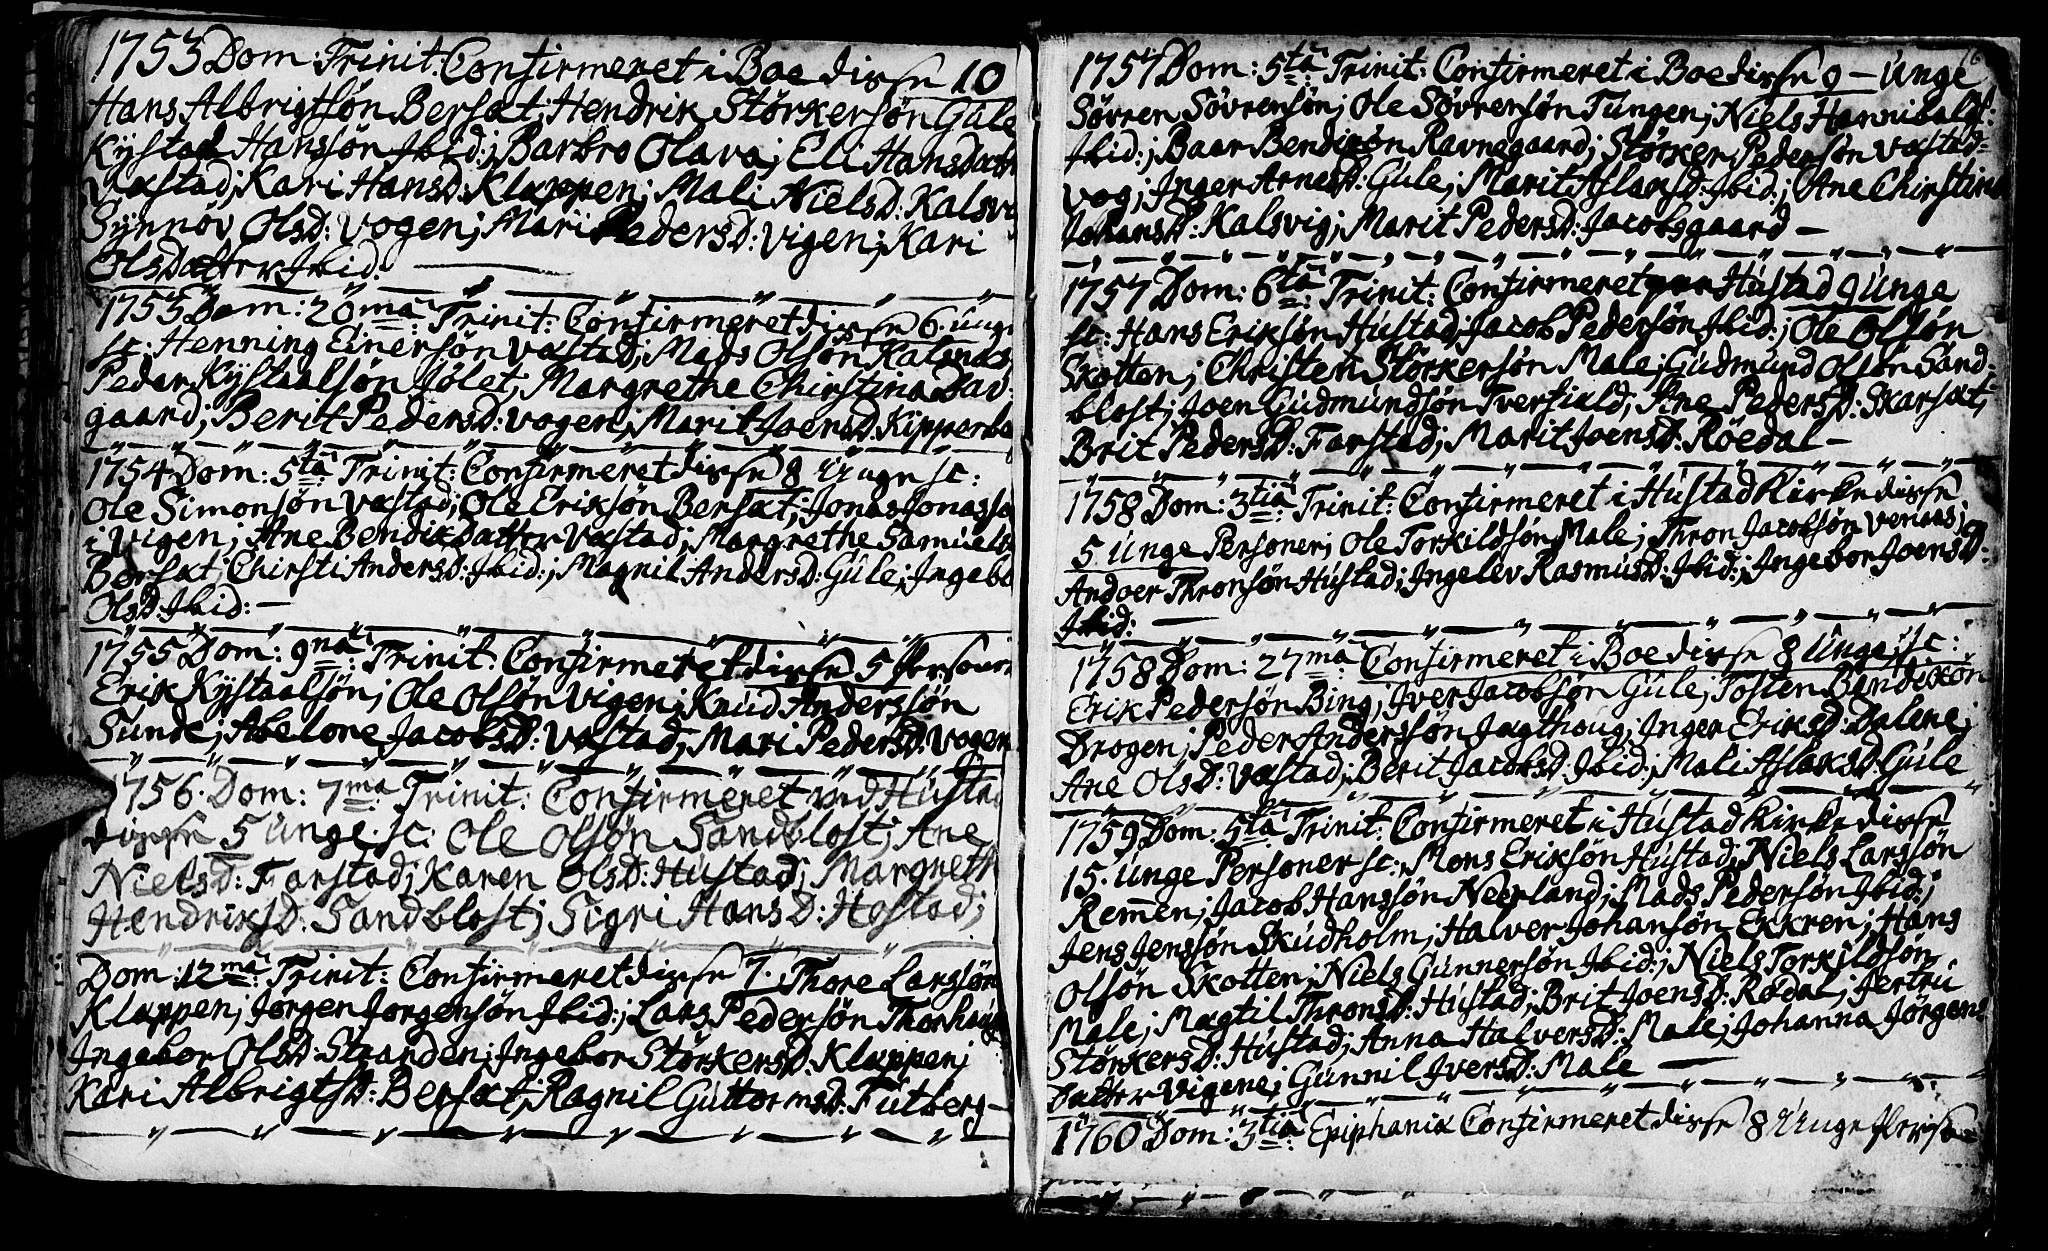 1753 Dom: Trinit: Confirmeret i Boe disse 10
Hans Albrigtsøn Bersæt; Hendrik Størkersøn Gule
Kÿstad Hansøn Ibid:; Barbro Olava; Eli Hansdatter
Væstad; Kari Hansd: Klappen; Mali Nielsd: Kalsvig
Sÿnnøv Olsd: Vogen; Mari Pedersd: Vigen; Kari
Olsdatter Ibid:
1753 Dom: 20ma Trinit: Confirmeret disse 6. unge
sc: Henning Einersøn Væstad; Mads Olsøn Kalsnæs
Peder Kÿstaalsøn Jølet; Margrethe Chirstina Dav-
gaard; Berit Pedersd: Vogen; Marit Joensd: Kipper
1754 Dom: 5ta Trinit: Confirmeret disse 8 unge sc:
Ole Simonsøn Væstad; Ole Eriksøn Bersæt; Jonas Jonassø
i Vigen; Ane Bendikdatter Væstad; Margrethe Samuelsd
Bersæt; Chirsti Andersd: Ibid:; Magnil Andersd: Gule; Ingebor
Olsd: Ibid:
1755 Dom: 9na Trinit: Confirmeret disse 5 Personer
Erik Kÿstaalsøn; Ole Olsøn Vigen; Knud Anderssøn
Sunde; Abelone Jacobsd: Væstad; Mari Pedersd: Vogen
1756. Dom: 7ma Trinit: Confirmeret ved Hustad
disse 5 unge sc: Ole Olsøn Sandblost; Ane
Nielsd: Farstad; Karen Olsd: Hustad; Margreth
Hendriksd: Sandblost; Sigri Hansd: Hostad;
Dom: 12ma Trinit: Confirmeret disse 7. Thore Larssøn
Klappen; Jørgen Jørgensøn Ibid:; Lars Pedersøn Thorhaug
Ingebor Olsd: Stranden; Ingebor Størkersd: Klappen;
Kari Albrigtsd: Bersæt; Ragnil Guttormsd: Futberg
16
1757 Dom: 5ta Trinit: Confirmeret i Boe disse 9 – Unge
Søvren Søvrensøn; Ole Søvrensøn Tungen; Niels Hannibals:
Ibid:; Baar Bendixøn Ravnegaard; Størker Pedersøn Væstad-
vog; Inger Arnesd: Gule; Marit Aslaksd: Ibid:; Ane Chirstina
Johansd: Kalsvig; Marit Pedersd: Jacobsgaard –
1757 Dom: 6ta Trinit: Confirmeret Hustad 9 Unge
sc: Hans Eriksøn Hustad; Jacob Pedersøn Ibid:; Ole Olsøn
Skotten; Christen Størkersøn Male; Gudmund Olsøn Sand-
blost; Joen Gudmundsøn Tverfiald; Ane Pedersd: Skarsæt;
Brit Pedersd: Farstad; Marit Joensd: Röedal –
1758 Dom: 3tia Trinit: Confirmeret i Hustad Kirke disse
5 Unge Personer; Ole Torkildsøn Male; Thron Jacobsøn Vænæs;
Andoer Thronsøn Hustad; Ingelev Rasmusd: Ibid:; Ingebor Joensd:
Ibid:
1758 Dom: 27ma Confirmeret i Boe disse 8 Unge; sc:
Erik Pedersøn Bing; Iver Jacobsøn Gule; Tosten Bendixøn
Drogen; Peder Anderssøn Jagthoug; Inger Eriksd: Dalene;
Ane Olsd: Væstad; Berit Jacobsd: Ibid:; Mali Aslaksd: Gule
1759 Dom: 5ta Trinit: Confirmeret i Hustad Kirke disse
15. Unge Personer sc: Mons Eriksøn Hustad; Niels Larssøn
Remen; Jacob Hanssøn Neerland; Mads Pedersøn Ibid:;
Jens Jenssøn Skudholm; Halver Johansøn Ekkren; Hans
Olsøn Skotten; Niels Gunnersøn Ibid:; Niels Torkildsøn
Male; Magtil Thronsd: Hustad; Brit Joensd: Rødal; Jertru
Størkersd: Hustad; Anna Halversd: Male; Johanna Jørgens
Datter Vigene; Gunnil Iversd: Male
1760 Dom: 3tia Epiphaniæ Confirmeret disse 8 Unge Perso-